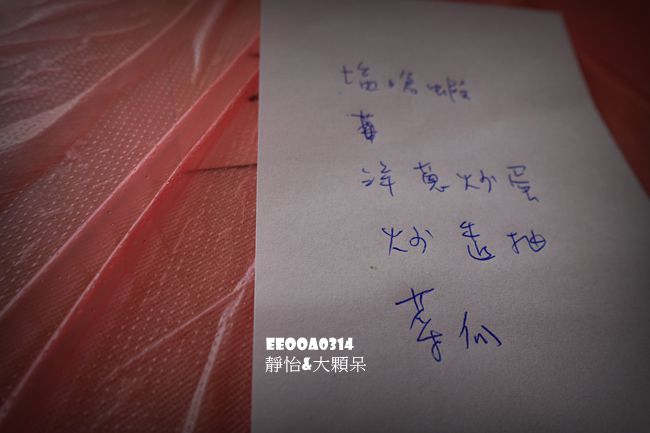 塩嗆蝦
洋蔥炒蛋
炒透抽
菜瓜
EE00A0314
靜怡&大顆呆